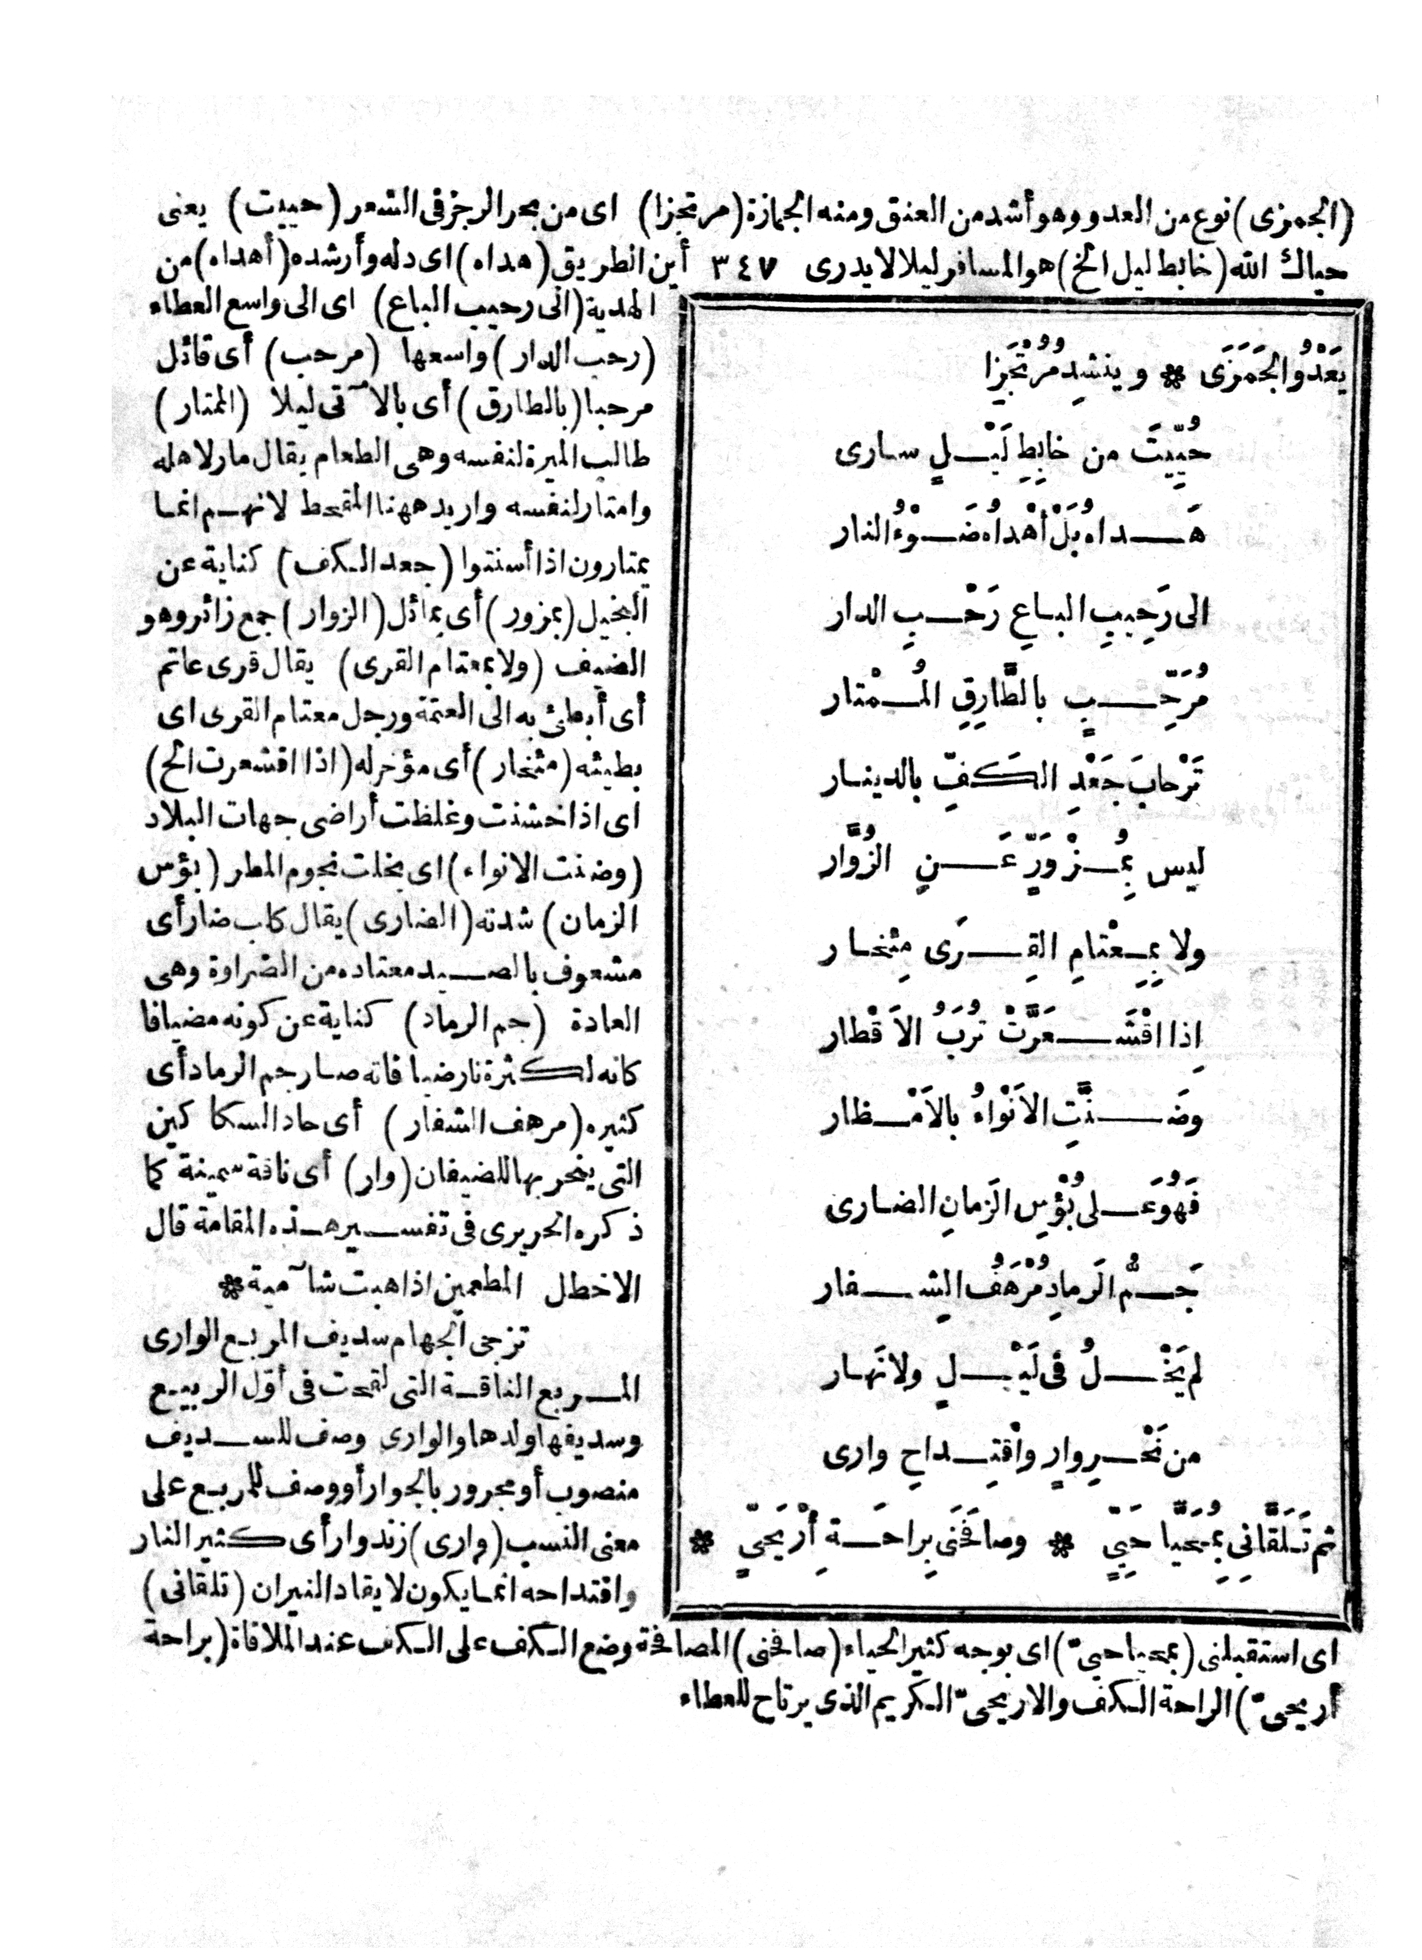 (الجمزى) نوع من العدو وهو أشد من العنق ومنه الجمازة (مرتجزا) اى من بحر الرجز فى الشعر (حييت) يعنى
حياك الله (خابط ليل الخ) هو المسافر ليلا لا يدرى ٣٤٧ أين الطريق (هداه) اى دله وأرشده (أهداه) من
الهدية (الى رحيب الباع) اى الى واسع العطاء
(رحب الدار) واسعها (مرحب) أى قائل
مرحبا (بالطارق) أى بالآتى ليلا (الممتار)
طالب الميرة لنفسه وهى الطعام يقال مار لاهله
وامتار لنفسه واريد ههنا المقحط لانهم انما
يمتارون اذا أسنتوا (جعد الكف) كناية عن
البخيل (بمزور) أى بمائل (الزوار) جمع زائر وهو
الضيف (ولا بمعتام القرى) يقال قرى عاتم
أى أبطئ به الى العتمة ورجل معتام القرى اى
بطيئه (مئخار) أى مؤخر له (اذا اقشعرت الخ)
اى اذا خشنت وغلظت أراضى جهات البلاد
(وضنت الانواء) اى بخلت نجوم المطر (بؤس
الزمان) شدته (الضارى) يقال كلب ضار أى
مشعوف بالصيد معتاده من الضراوة وهى
العادة (جم الرماد) كناية عن كونه مضيافا
كانه لكثرة نار ضيافانه صار جم الرماد أى
كثيره (مرهف الشفار) أى حاد السكاكين
التى ينحر بها للضيفان (وار) أى ناقة سمينة كما
ذكره الحريرى فى تفسير هذه المقامة قال
الاخطل المطعمين اذا هبت شآمية *
تزجى الجهام سديف المربع الوارى
المربع الناقة التى لقحت فى أول الربيع
وسديفها ولدها والوارى وصف للسديف
منصوب أو مجرور بالجوار أو وصف للمربع على
معنى النسب (وارى) زند وار أى كثير النار
واقتداحه انما يكون لايقاد النيران (تلقانى)
يَعْدُو الجَمَزَى * وينشد مُرْتَجِزَا
حُيِّيتَ من خابِطِ لَيْلٍ سارى
هَداهُ بَلْ أَهْداهُ ضَوْءُ النار
الى رَحِيبِ الباعِ رَحْبِ الدار
مُرَحِّبٍ بالطَّارِقِ المُمْتار
تَرْحابَ جَعْدِ الكَفِّ بالدينار
ليس بِمُزْوَرٍّ عَنِ الزُّوَّار
ولا بِمِعْتامِ القِرَى مِئْخار
اِذا اقْشَعَرَّتْ تُرَبُ الاَقْطار
وضَنَّتِ الاَنْواءُ بالاَمْطار
فَهُوَ عَلى بُؤْسِ الزَمانِ الضارى
جَمُّ الرَمادِ مُرْهَفُ الشِفار
لم يَخْلُ فى لَيْلٍ ولا نَهار
من نَحْرِ وارٍ واقْتِداحِ وارى
ثم تَلَقَّانِى بِمُحَيَّا حَيِيٍّ * وصافَحَنى بِراحَةِ أَرْيَحِيٍّ *
اى استقبلنى (بمحيا حيىّ) اى بوجه كثير الحياء (صافحنى) المصافحة وضع الكف على الكف عند الملاقاة (براحة
أريحىّ) الراحة الكف والاريحىّ الكريم الذى يرتاح للعطاء